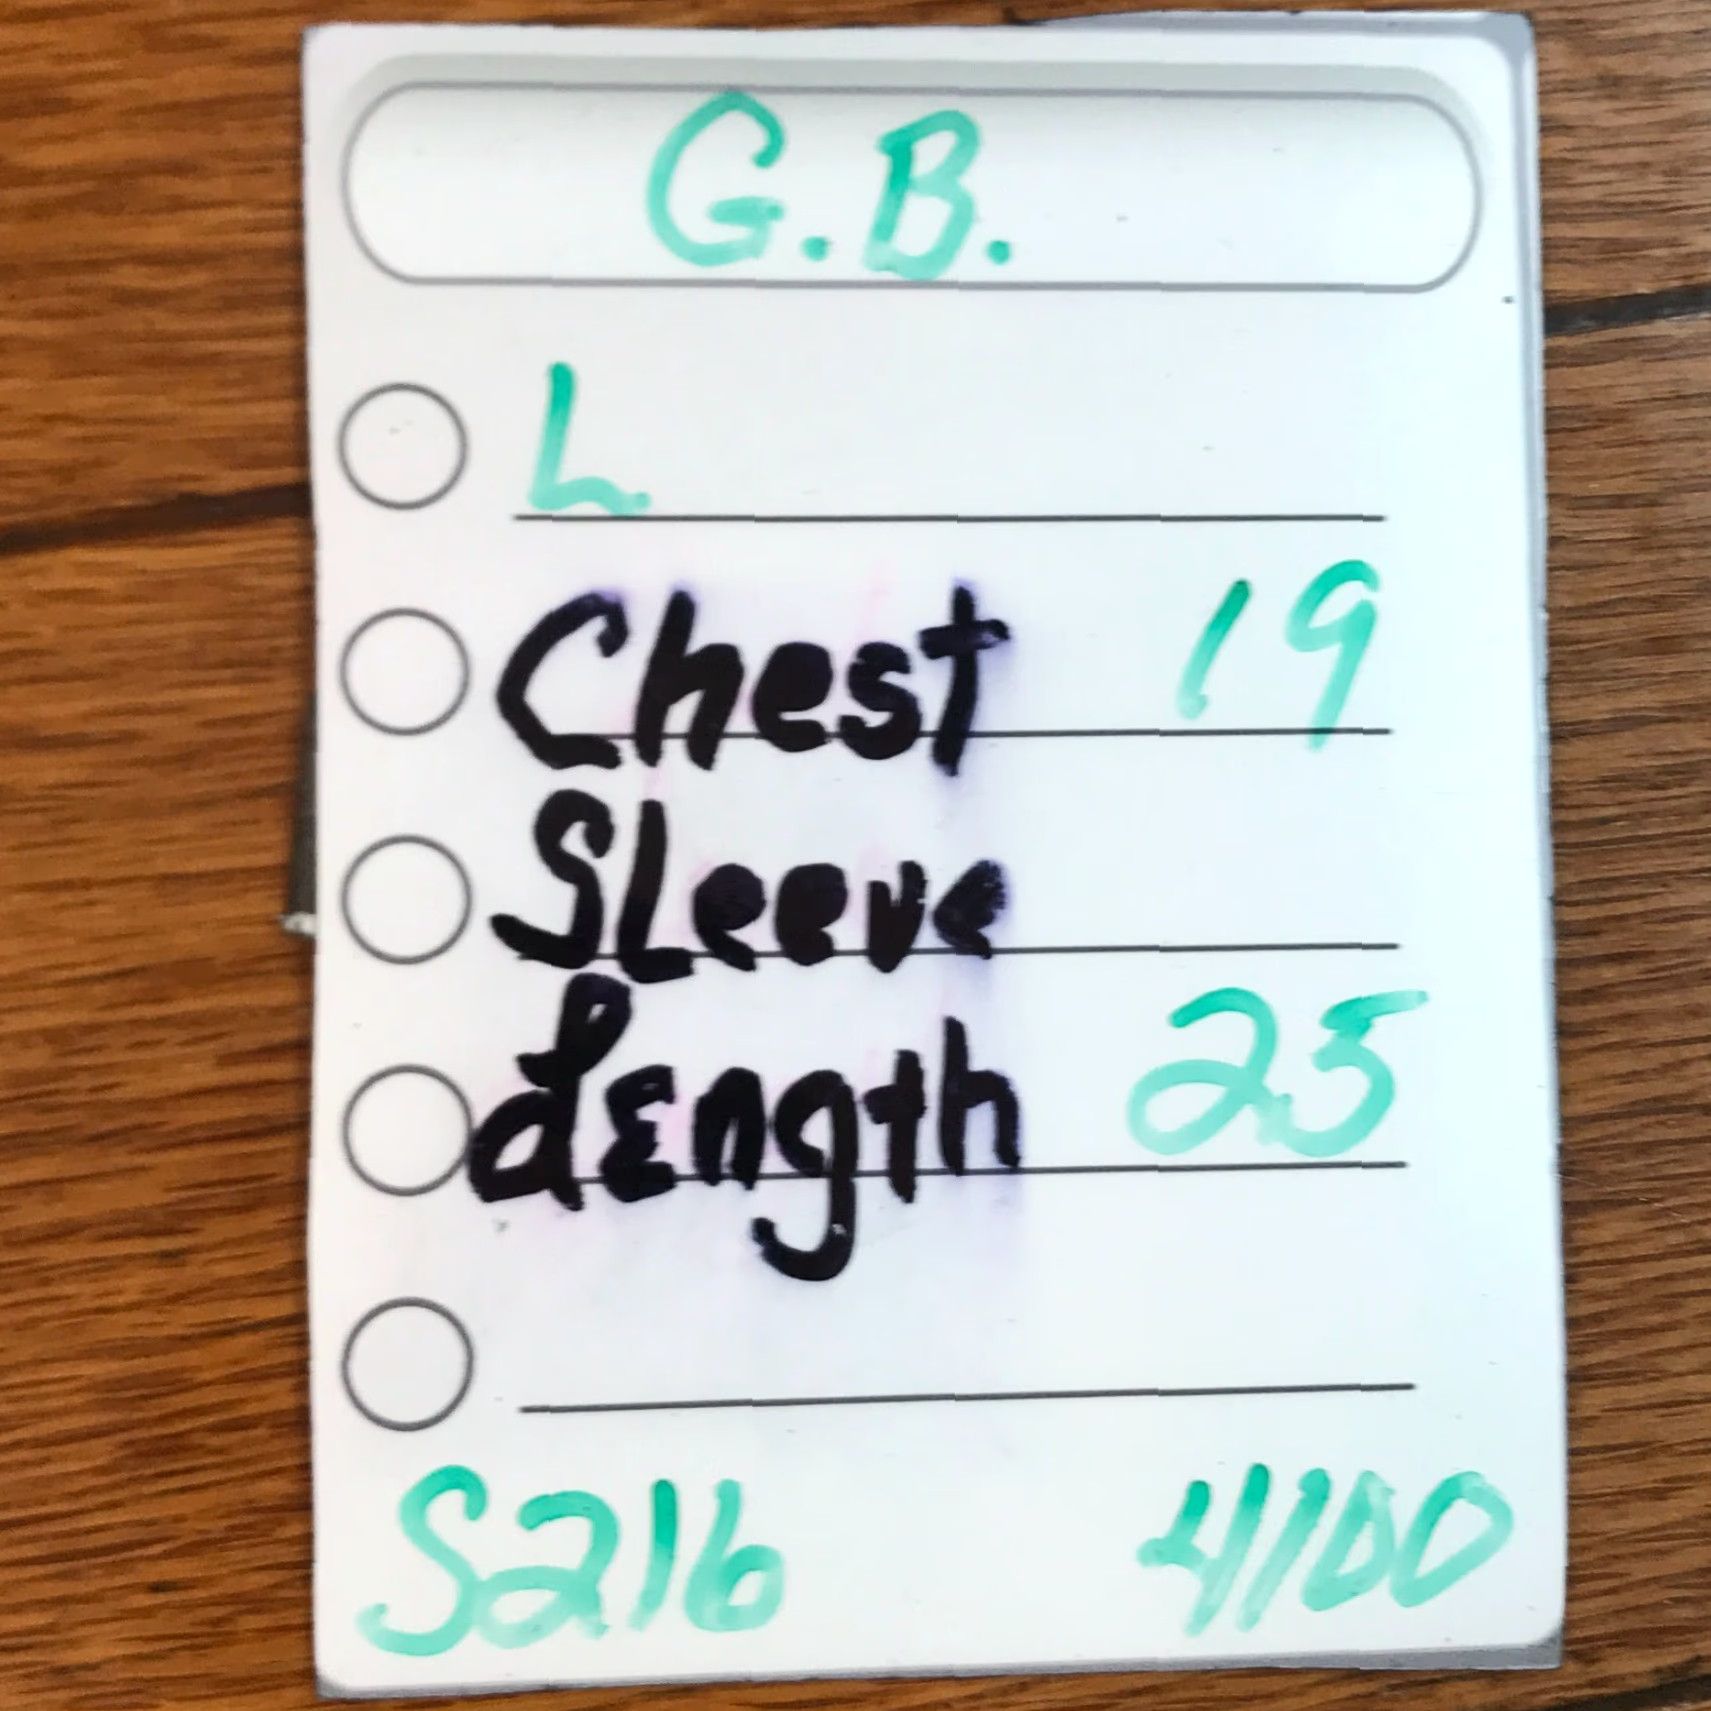 G.B.
L
Chest 19
SLeeve
Length 25
S216 4100